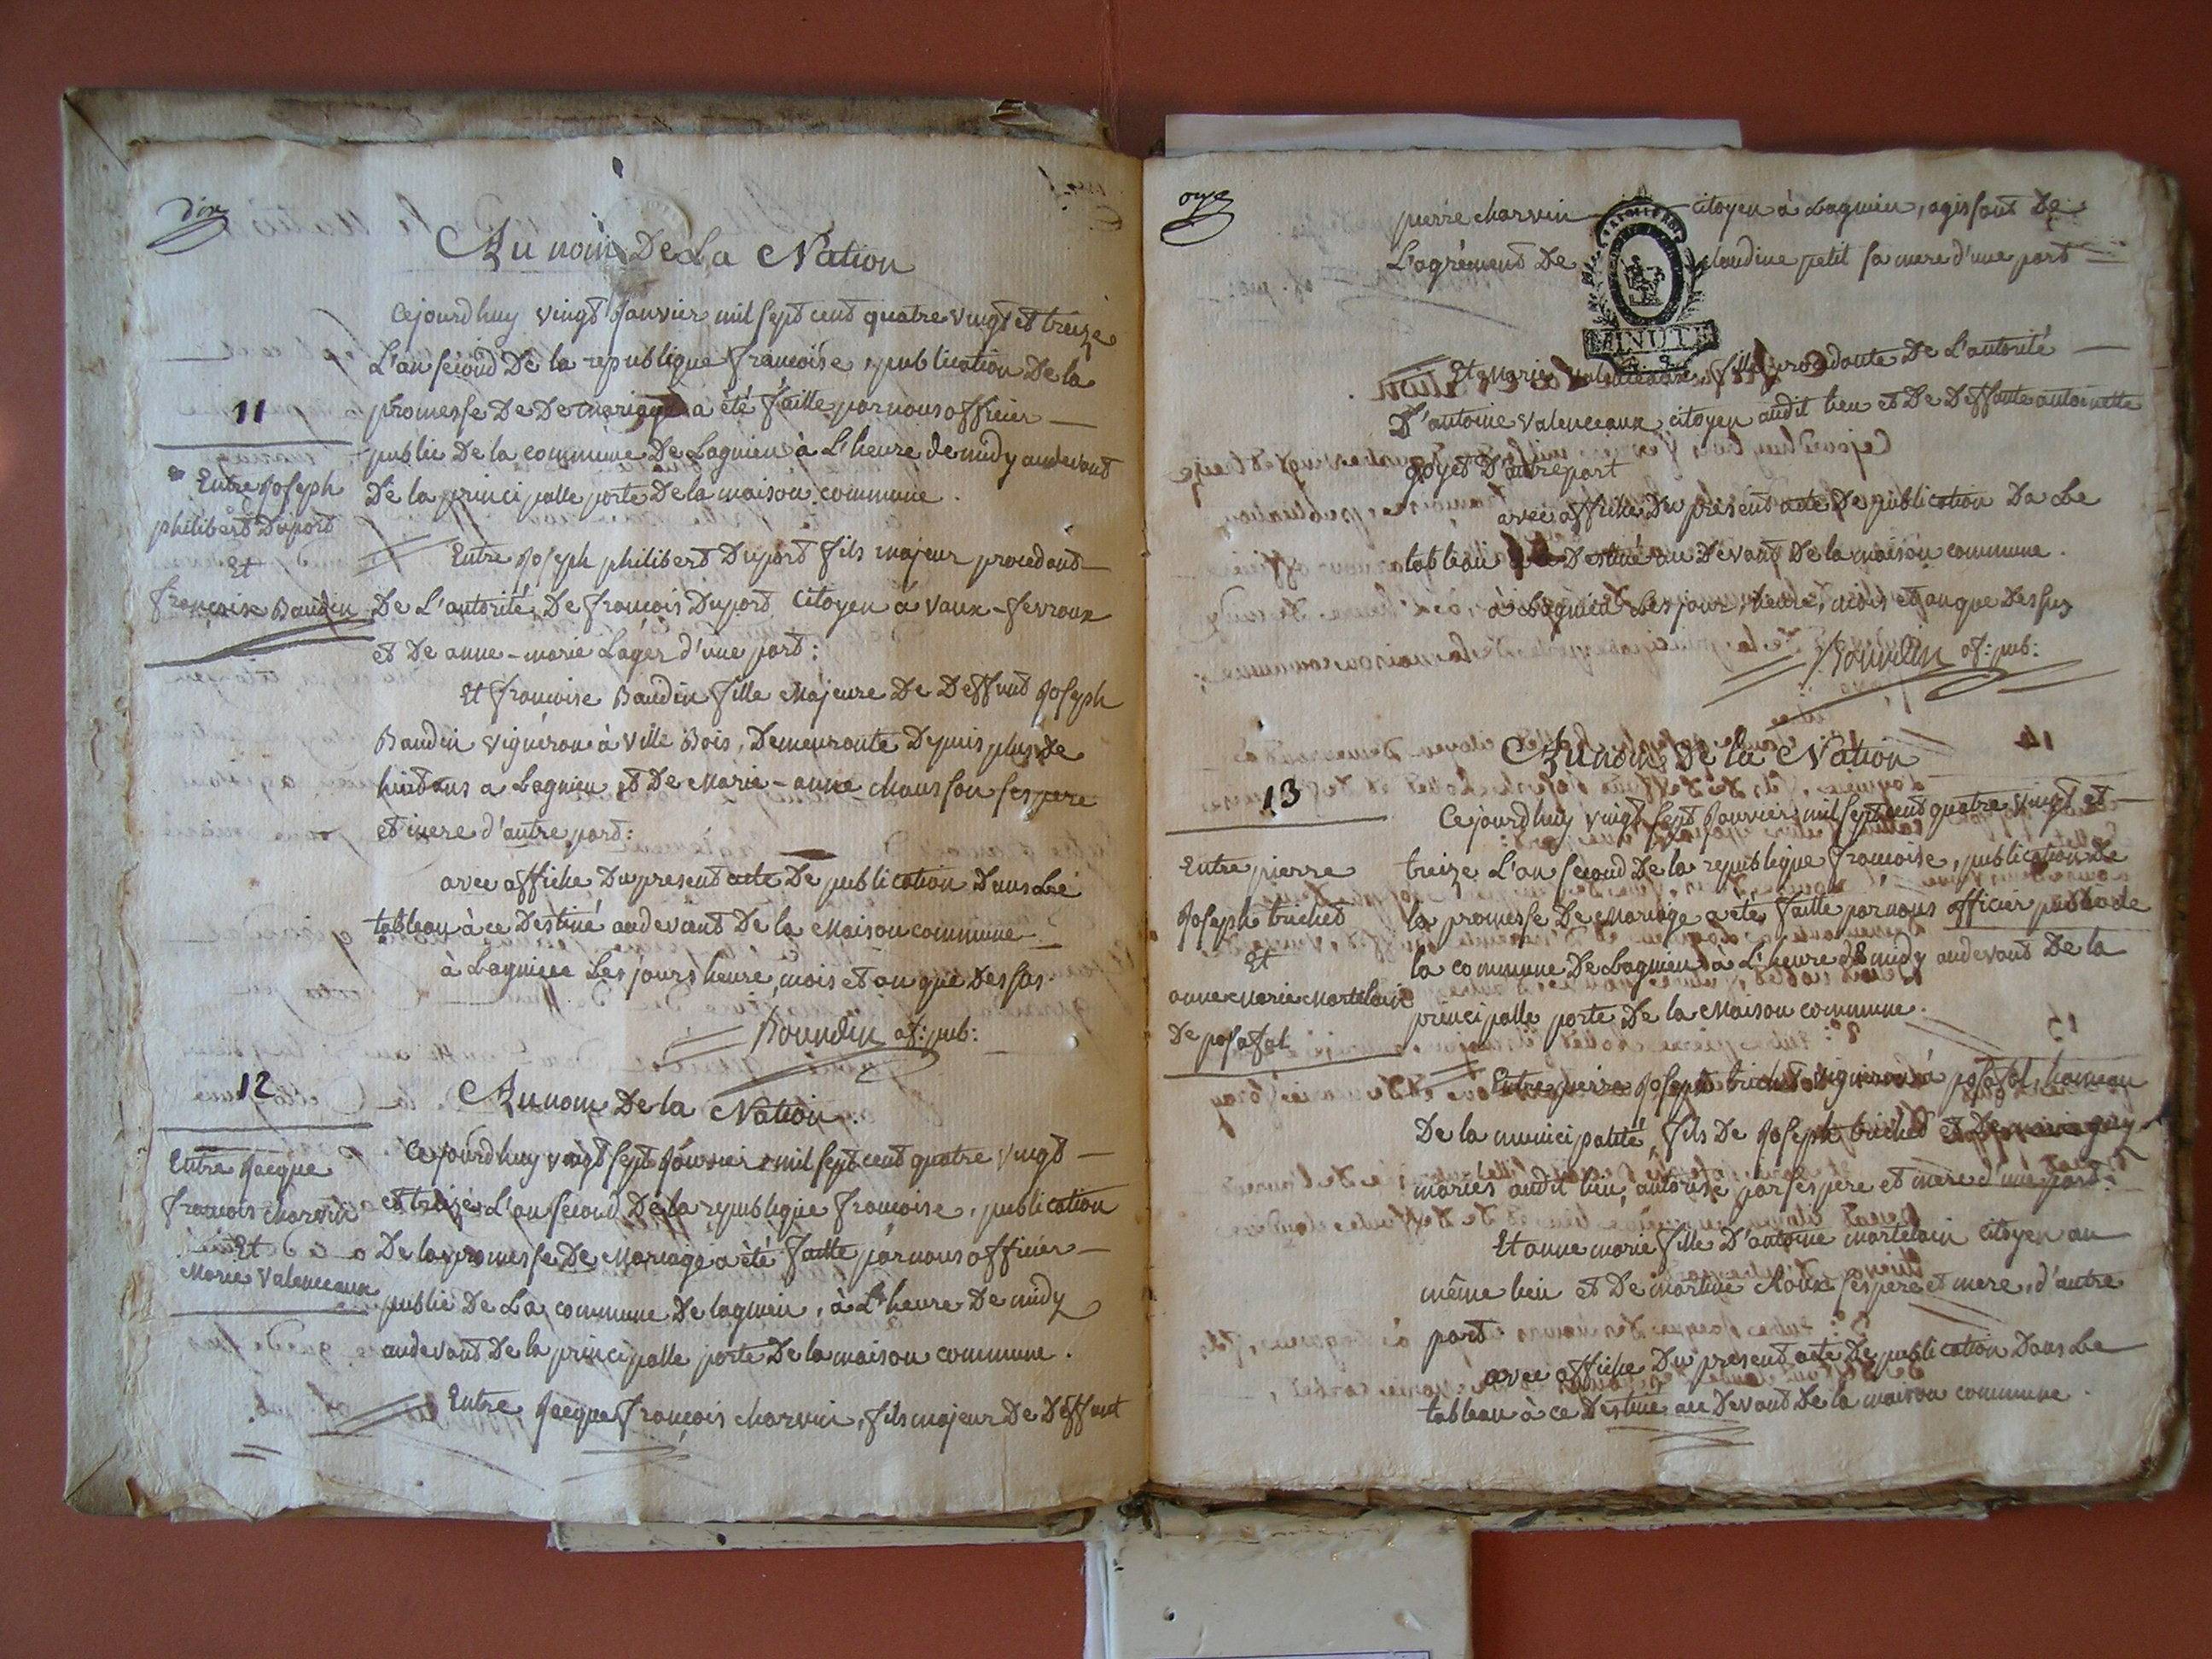 dix
Au nom De La Nation
Cejourdhuy vingt Janvier mil sept cent quatre vingt et treize
L'an second De la republique francoise, publication De la
promesse De De mariage a été faitte par nous officier
public De la commune De Lagnieu à L'heure de midy audevant
De la principalle porte De la maison commune.
11
Entre Joseph
philibert Duport
Et
françoise Baudin
Entre Joseph philibert Duport fils majeur procedant
De L'autorité De francois Duport Citoyen à Vaux-fevroux
et De anne-marie Lager d'une part:
Et francoise Baudin fille Majeure De Deffunt Joseph
Baudin vigneron à Ville Bois, Demeurante Depuis plus De
huit ans a Lagnieu et De Marie-anne chausson ses pere
et mere d'autre part:
avec affiche Du present acte De publication Dans Le
tableau à ce Destiné audevant De la Maison commune
à Lagnieu Les jours heure, mois et an que Dessus.
Bourdin of: pub:
12
Au nom De la Nation.
Entre Jacque
francois charvin
Et
Marie Valenceaux
Cejourdhuy vingt sept Janvier mil sept cent quatre vingt
et treize L'an second De la republique francoise, publication
De la promesse De Mariage a été faitte par nous officier
public De La commune De lagnieu, à L'heure De midy
audevant De la principalle porte De la maison commune.
Entre Jacque francois charvin, fils majeur De Deffunt
onze
pierre charvin citoyen à Lagnieu, agissant De
L'agrément De claudine petit sa mere d'une part
MINUTE
Et Marie valenceaux fille procedante De L'autorité
D'antoine Valenceaux citoyen audit lieu et De Deffunte antoinette
goyet D'autre part
avec affiche Du present acte De publication Da Le
tableau Destiné au Devant De la maison commune.
à Lagnieu Les jour, heure, mois et an que Dessus
Bourdin of: pub:
Au nom De la Nation
13
Entre pierre
Joseph trichet
Et
anne Marie Martelain
De posafol
Cejourdhuy vingt sept Janvier mil sept cent quatre vingt et
treize L'an second De la republique francoise, publication De
la promesse De Mariage a été faitte par nous officier public de
la commune De Lagnieu à L'heure de midy audevant De la
principalle porte De la Maison commune.
Entre pierre Joseph trichet vigneron à posafol, hameau
De la municipalité, fils De Joseph trichet et De marie guy
mariés audit lieu, autorisé par ses pere et mere d'une part.
Et anne marie fille D'antoine martelain citoyen au
même lieu et De martine Roux ses pere et mere, d'autre
part
avec affiche Du present acte De publication Dans Le
tableau à ce Destiné au Devant De la maison commune.